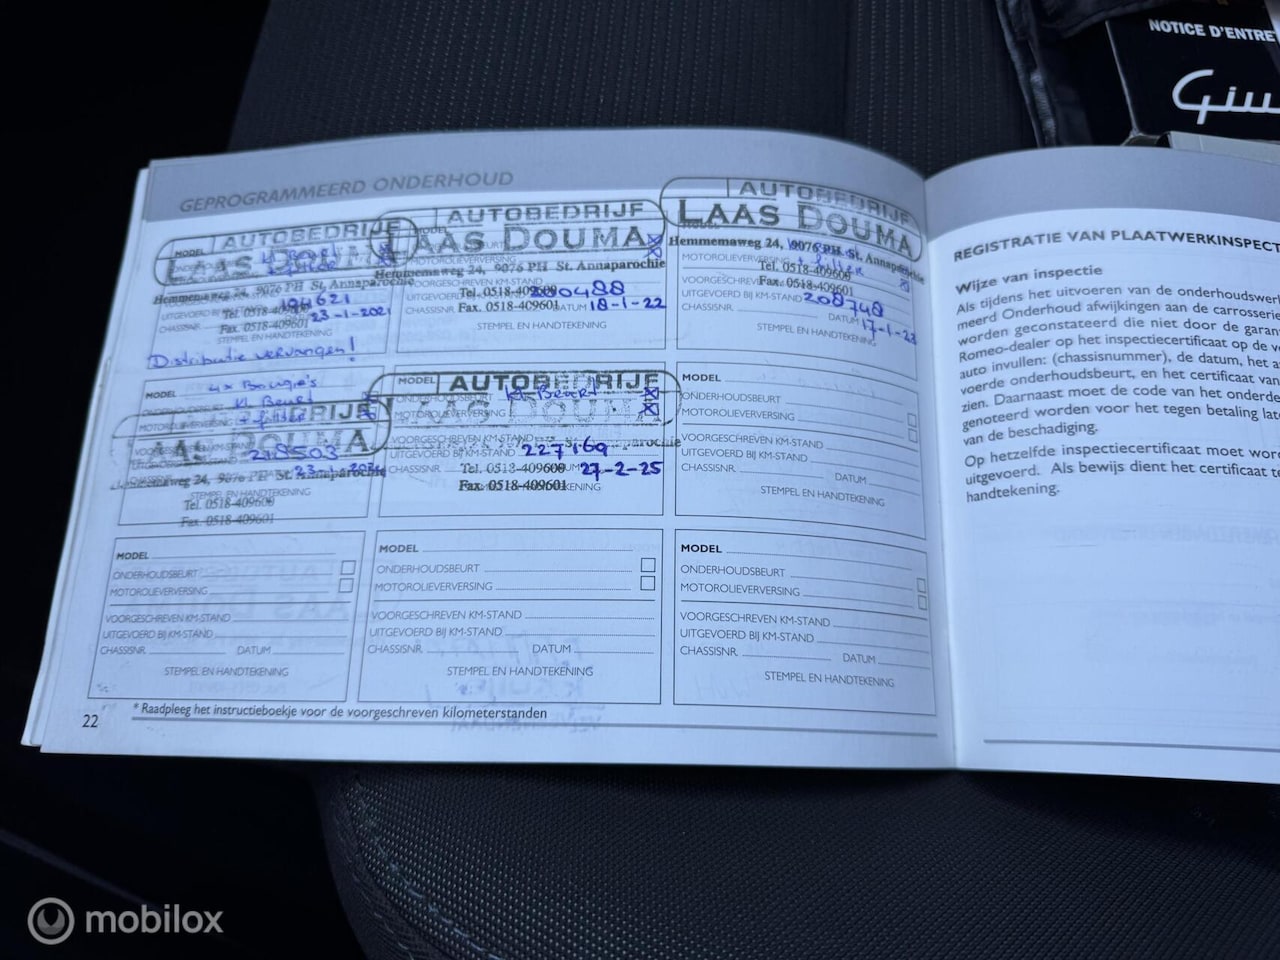 NOTICE D'ENTRE
Giu
GEPROGRAMMEERD ONDERHOUD
AUTOBEDRIJF
LAAS DOUMA
MODEL
Hemmemaweg 24, 9076 PH St. Annaparochie
194621
Tel. 0518-409600
Fax. 0518-409601
23-1-2021
CHASSISNR.
STEMPEL EN HANDTEKENING
Distributie vervangen!
AUTOBEDRIJF
LAAS DOUMA
Hemmemaweg 24, 9076 PH St. Annaparochie
Tel. 0518-409600
UITGEVOERD BIJ KM-STAND 200488
Fax. 0518-409601
CHASSISNR. DATUM 18-1-22
STEMPEL EN HANDTEKENING
AUTOBEDRIJF
LAAS DOUMA
Hemmemaweg 24, 9076 PH St. Annaparochie
MOTOROLIEVERVERSING
Tel. 0518-409600
VOORGESCHREVEN KM-STAND
Fax. 0518-409601
UITGEVOERD BIJ KM-STAND 208748
CHASSISNR. DATUM 17-1-23
STEMPEL EN HANDTEKENING
MODEL
4x Bougie's
Kl Beurt
+ filter
218503
Tel. 0518-409600
Fax. 0518-409601
STEMPEL EN HANDTEKENING
MODEL
AUTOBEDRIJF
Kl Beurt
ONDERHOUDSBEURT
MOTOROLIEVERVERSING
VOORGESCHREVEN KM-STAND
227169
CHASSISNR.
Tel. 0518-409600
27-2-25
Fax. 0518-409601
MODEL
ONDERHOUDSBEURT
MOTOROLIEVERVERSING
VOORGESCHREVEN KM-STAND
UITGEVOERD BIJ KM-STAND
CHASSISNR. DATUM
STEMPEL EN HANDTEKENING
MODEL
ONDERHOUDSBEURT
MOTOROLIEVERVERSING
VOORGESCHREVEN KM-STAND
UITGEVOERD BIJ KM-STAND
CHASSISNR. DATUM
STEMPEL EN HANDTEKENING
MODEL
ONDERHOUDSBEURT
MOTOROLIEVERVERSING
VOORGESCHREVEN KM-STAND
UITGEVOERD BIJ KM-STAND
CHASSISNR. DATUM
STEMPEL EN HANDTEKENING
MODEL
ONDERHOUDSBEURT
MOTOROLIEVERVERSING
VOORGESCHREVEN KM-STAND
UITGEVOERD BIJ KM-STAND
CHASSISNR. DATUM
STEMPEL EN HANDTEKENING
* Raadpleeg het instructieboekje voor de voorgeschreven kilometerstanden
22
REGISTRATIE VAN PLAATWERKINSPECT
Wijze van inspectie
Als tijdens het uitvoeren van de onderhoudswer
meerd Onderhoud afwijkingen aan de carrosserie
worden geconstateerd die niet door de garan
Romeo-dealer op het inspectiecertificaat op de v
auto invullen: (chassisnummer), de datum, het a
voerde onderhoudsbeurt, en het certificaat van
zien. Daarnaast moet de code van het onderde
genoteerd worden voor het tegen betaling late
van de beschadiging.
Op hetzelfde inspectiecertificaat moet wor
uitgevoerd. Als bewijs dient het certificaat te
handtekening.
mobilox